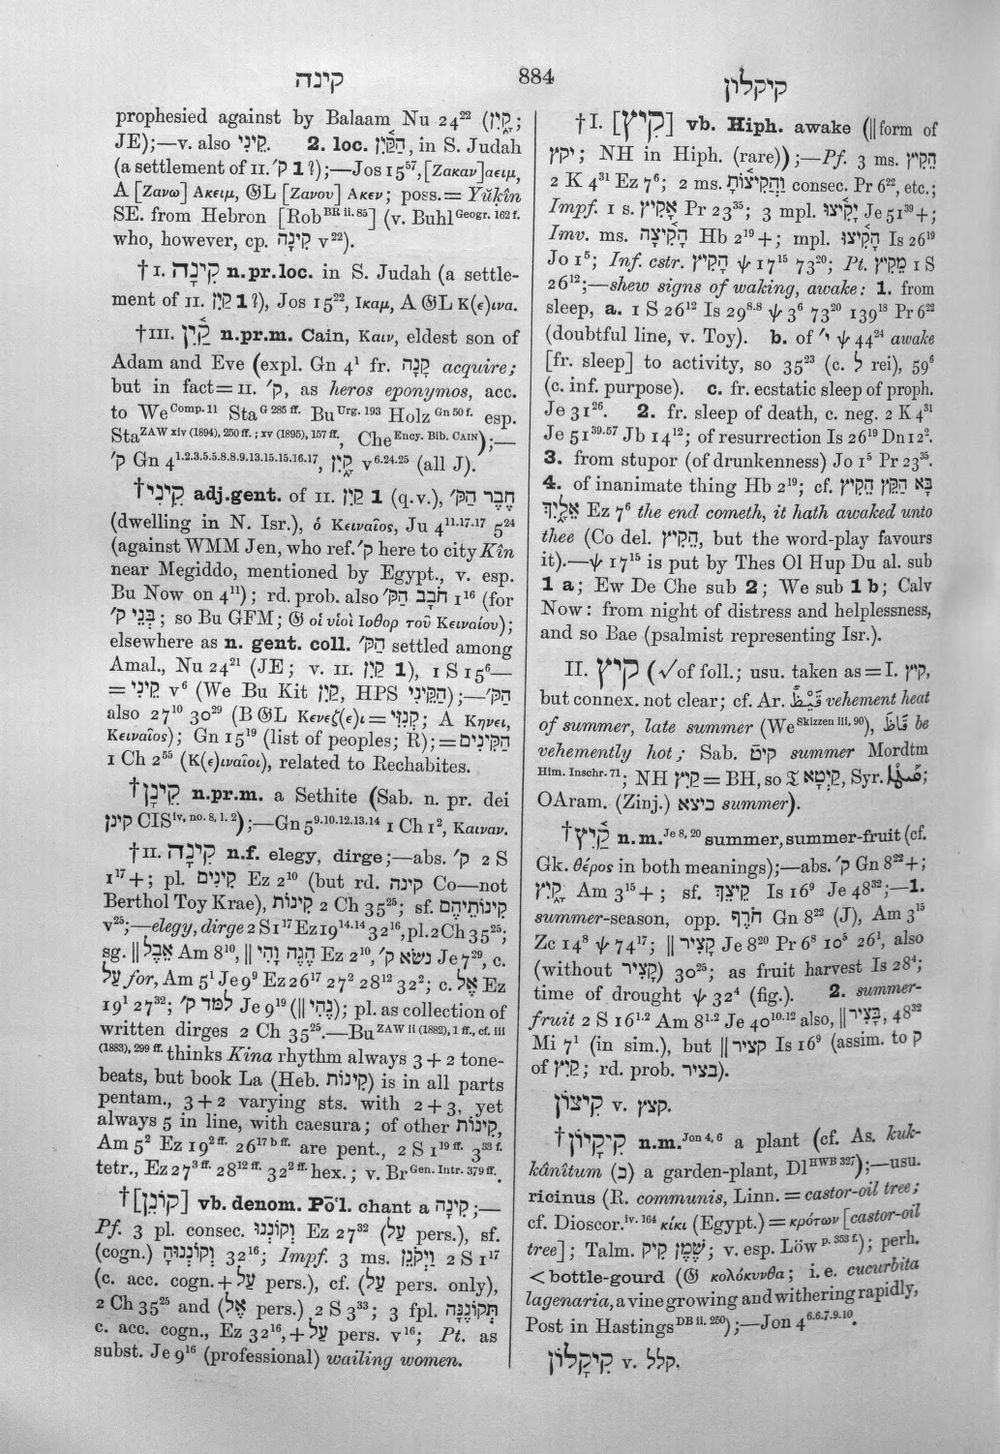 קינה
884
קיקלון
prophesied against by Balaam Nu 24²² (קָיִן;
JE);—v. also קֵינִי. 2. loc. הַקַּיִן, in S. Judah
(a settlement of II. ק׳ 1 ?);—Jos 15⁵⁷, [Ζακαν]αειμ,
A [Ζανω] Ακειμ, 𝔊L [Ζανου] Ακεν; poss. = Yŭḳîn
SE. from Hebron [Rob BR ii. 85] (v. Buhl Geogr. 162 f.
who, however, cp. קִינָה v²²).
†I. קִינָה n.pr.loc. in S. Judah (a settle-
ment of II. קַיִן 1 ?), Jos 15²², Ικαμ, A 𝔊L Κ(ε)ινα.
†III. קַיִן n.pr.m. Cain, Καιν, eldest son of
Adam and Eve (expl. Gn 4¹ fr. קָנָה acquire;
but in fact = II. ק׳, as heros eponymos, acc.
to We Comp. 11 Sta G 285 ff. Bu Urg. 193 Holz Gn 50 f. esp.
Sta ZAW xiv (1894), 250 ff. ; xv (1895), 157 ff., Che Ency. Bib. CAIN);—
ק׳ Gn 4¹·²·³·⁵·⁵·⁸·⁸·⁹·¹³·¹⁵·¹⁵·¹⁶·¹⁷, קָיִן v⁶·²⁴·²⁵ (all J).
†קֵינִי adj.gent. of II. קַיִן 1 (q.v.), חֶבֶר הַקּ׳
(dwelling in N. Isr.), ὁ Κειναῖος, Ju 4¹¹·¹⁷·¹⁷ 5²⁴
(against WMM Jen, who ref. ק׳ here to city Kîn
near Megiddo, mentioned by Egypt., v. esp.
Bu Now on 4¹¹); rd. prob. also חֹבָב הַקּ׳ 1¹⁶ (for
בְּנֵי ק׳; so Bu GFM; 𝔊 οἱ υἱοὶ Ιοθορ τοῦ Κειναίου);
elsewhere as n. gent. coll. הַקּ׳ settled among
Amal., Nu 24²¹ (JE; v. II. קַיִן 1), 1 S 15⁶—
= קֵינִי v⁶ (We Bu Kit קַיִן, HPS הַקֵּינִי);—הַקּ׳
also 27¹⁰ 30²⁹ (B 𝔊L Κενεζ(ε)ι = קְנִזִּי; A Κηνει,
Κειναῖος); Gn 15¹⁹ (list of peoples; R); = הַקִּינִים
1 Ch 2⁵⁵ (Κ(ε)ιναῖοι), related to Rechabites.
†קֵינָן n.pr.m. a Sethite (Sab. n. pr. dei
קינן CIS iv, no. 8, l. 2);—Gn 5⁹·¹⁰·¹²·¹³·¹⁴ 1 Ch 1², Καιναν.
†II. קִינָה n.f. elegy, dirge;—abs. ק׳ 2 S
1¹⁷ +; pl. קִינִים Ez 2¹⁰ (but rd. קינה Co—not
Berthol Toy Krae), קִינוֹת 2 Ch 35²⁵; sf. קִינוֹתֵיהֶם
v²⁵;—elegy, dirge 2 S 1¹⁷ Ez 19¹⁴·¹⁴ 32¹⁶, pl. 2 Ch 35²⁵;
sg. ‖ אֵבֶל Am 8¹⁰, ‖ הֶגֶה וָהִי Ez 2¹⁰, נשׂא ק׳ Je 7²⁹, c.
עַל for, Am 5¹ Je 9⁹ Ez 26¹⁷ 27² 28¹² 32²; c. אֶל Ez
19¹ 27³²; למד ק׳ Je 9¹⁹ (‖ נֶהִי); pl. as collection of
written dirges 2 Ch 35²⁵.—Bu ZAW ii (1882), 1 ff., cf. iii
(1883), 299 ff. thinks Kina rhythm always 3 + 2 tone-
beats, but book La (Heb. קִינוֹת) is in all parts
pentam., 3 + 2 varying sts. with 2 + 3, yet
always 5 in line, with caesura; of other קִינוֹת,
Am 5² Ez 19² ff. 26¹⁷ b ff. are pent., 2 S 1¹⁹ ff. 3³³ f.
tetr., Ez 27³ ff. 28¹² ff. 32² ff. hex.; v. Br Gen. Intr. 379 ff.
†[קוֹנֵן] vb. denom. Pō'l. chant a קִינָה;—
Pf. 3 pl. consec. וְקוֹנְנוּ Ez 27³² (עַל pers.), sf.
(cogn.) וְקוֹנְנוּהָ 32¹⁶; Impf. 3 ms. וַיְקֹנֵן 2 S 1¹⁷
(c. acc. cogn. + עַל pers.), cf. (עַל pers. only),
2 Ch 35²⁵ and (אֶל pers.) 2 S 3³³; 3 fpl. תְּקוֹנֵנָּה
c. acc. cogn., Ez 32¹⁶, + עַל pers. v¹⁶; Pt. as
subst. Je 9¹⁶ (professional) wailing women.
†I. [קִיץ] vb. Hiph. awake (‖ form of
יקץ; NH in Hiph. (rare));—Pf. 3 ms. הֵקִיץ
2 K 4³¹ Ez 7⁶; 2 ms. וַהֲקִיצוֹתָ consec. Pr 6²², etc.;
Impf. 1 s. אָקִיץ Pr 23³⁵; 3 mpl. יָקִיצוּ Je 51³⁹ +;
Imv. ms. הָקִיצָה Hb 2¹⁹ +; mpl. הָקִיצוּ Is 26¹⁹
Jo 1⁵; Inf. cstr. הָקִיץ ψ 17¹⁵ 73²⁰; Pt. מֵקִיץ 1 S
26¹²;—shew signs of waking, awake: 1. from
sleep, a. 1 S 26¹² Is 29⁸·⁸ ψ 3⁶ 73²⁰ 139¹⁸ Pr 6²²
(doubtful line, v. Toy). b. of י׳ ψ 44²⁴ awake
[fr. sleep] to activity, so 35²³ (c. לְ rei), 59⁶
(c. inf. purpose). c. fr. ecstatic sleep of proph.
Je 31²⁶. 2. fr. sleep of death, c. neg. 2 K 4³¹
Je 51³⁹·⁵⁷ Jb 14¹²; of resurrection Is 26¹⁹ Dn 12².
3. from stupor (of drunkenness) Jo 1⁵ Pr 23³⁵.
4. of inanimate thing Hb 2¹⁹; cf. בָּא הַקֵּץ הֵקִיץ
אֵלָיִךְ Ez 7⁶ the end cometh, it hath awaked unto
thee (Co del. הֵקִיץ, but the word-play favours
it).—ψ 17¹⁵ is put by Thes Ol Hup Du al. sub
1 a; Ew De Che sub 2; We sub 1 b; Calv
Now: from night of distress and helplessness,
and so Bae (psalmist representing Isr.).
II. קיץ (√ of foll.; usu. taken as = I. קיץ,
but connex. not clear; cf. Ar. قَيْظٌ vehement heat
of summer, late summer (We Skizzen iii. 90), قَاظَ be
vehemently hot; Sab. קיט summer Mordtm
Him. Inschr. 71; NH קַיִץ = BH, so 𝔗 קֵיטָא, Syr. ܩܰܝܛܳܐ;
OAram. (Zinj.) כיצא summer).
†קַיִץ n.m. Je 8, 20 summer, summer-fruit (cf.
Gk. θέρος in both meanings);—abs. ק׳ Gn 8²² +;
קָיִץ Am 3¹⁵ +; sf. קֵיצֵךְ Is 16⁹ Je 48³²;—1.
summer-season, opp. חֹרֶף Gn 8²² (J), Am 3¹⁵
Zc 14⁸ ψ 74¹⁷; ‖ קָצִיר Je 8²⁰ Pr 6⁸ 10⁵ 26¹, also
(without קָצִיר) 30²⁵; as fruit harvest Is 28⁴;
time of drought ψ 32⁴ (fig.). 2. summer-
fruit 2 S 16¹·² Am 8¹·² Je 40¹⁰·¹² also, ‖ בָּצִיר, 48³²
Mi 7¹ (in sim.), but ‖ קציר Is 16⁹ (assim. to ק
of קַיִץ; rd. prob. בציר).
קִיצוֹן v. קצץ.
†קִיקָיוֹן n.m. Jon 4, 6 a plant (cf. As. kuk-
kânîtum (כ) a garden-plant, Dl HWB 327);—usu.
ricinus (R. communis, Linn. = castor-oil tree;
cf. Dioscor. iv. 164 κίκι (Egypt.) = κρότων [castor-oil
tree]; Talm. שֶׁמֶן קִיק; v. esp. Löw p. 353 f.); perh.
< bottle-gourd (𝔊 κολόκυνθα; i.e. cucurbita
lagenaria, a vine growing and withering rapidly,
Post in Hastings DB ii. 250);—Jon 4⁶·⁶·⁷·⁹·¹⁰.
קִיקָלוֹן v. קלל.